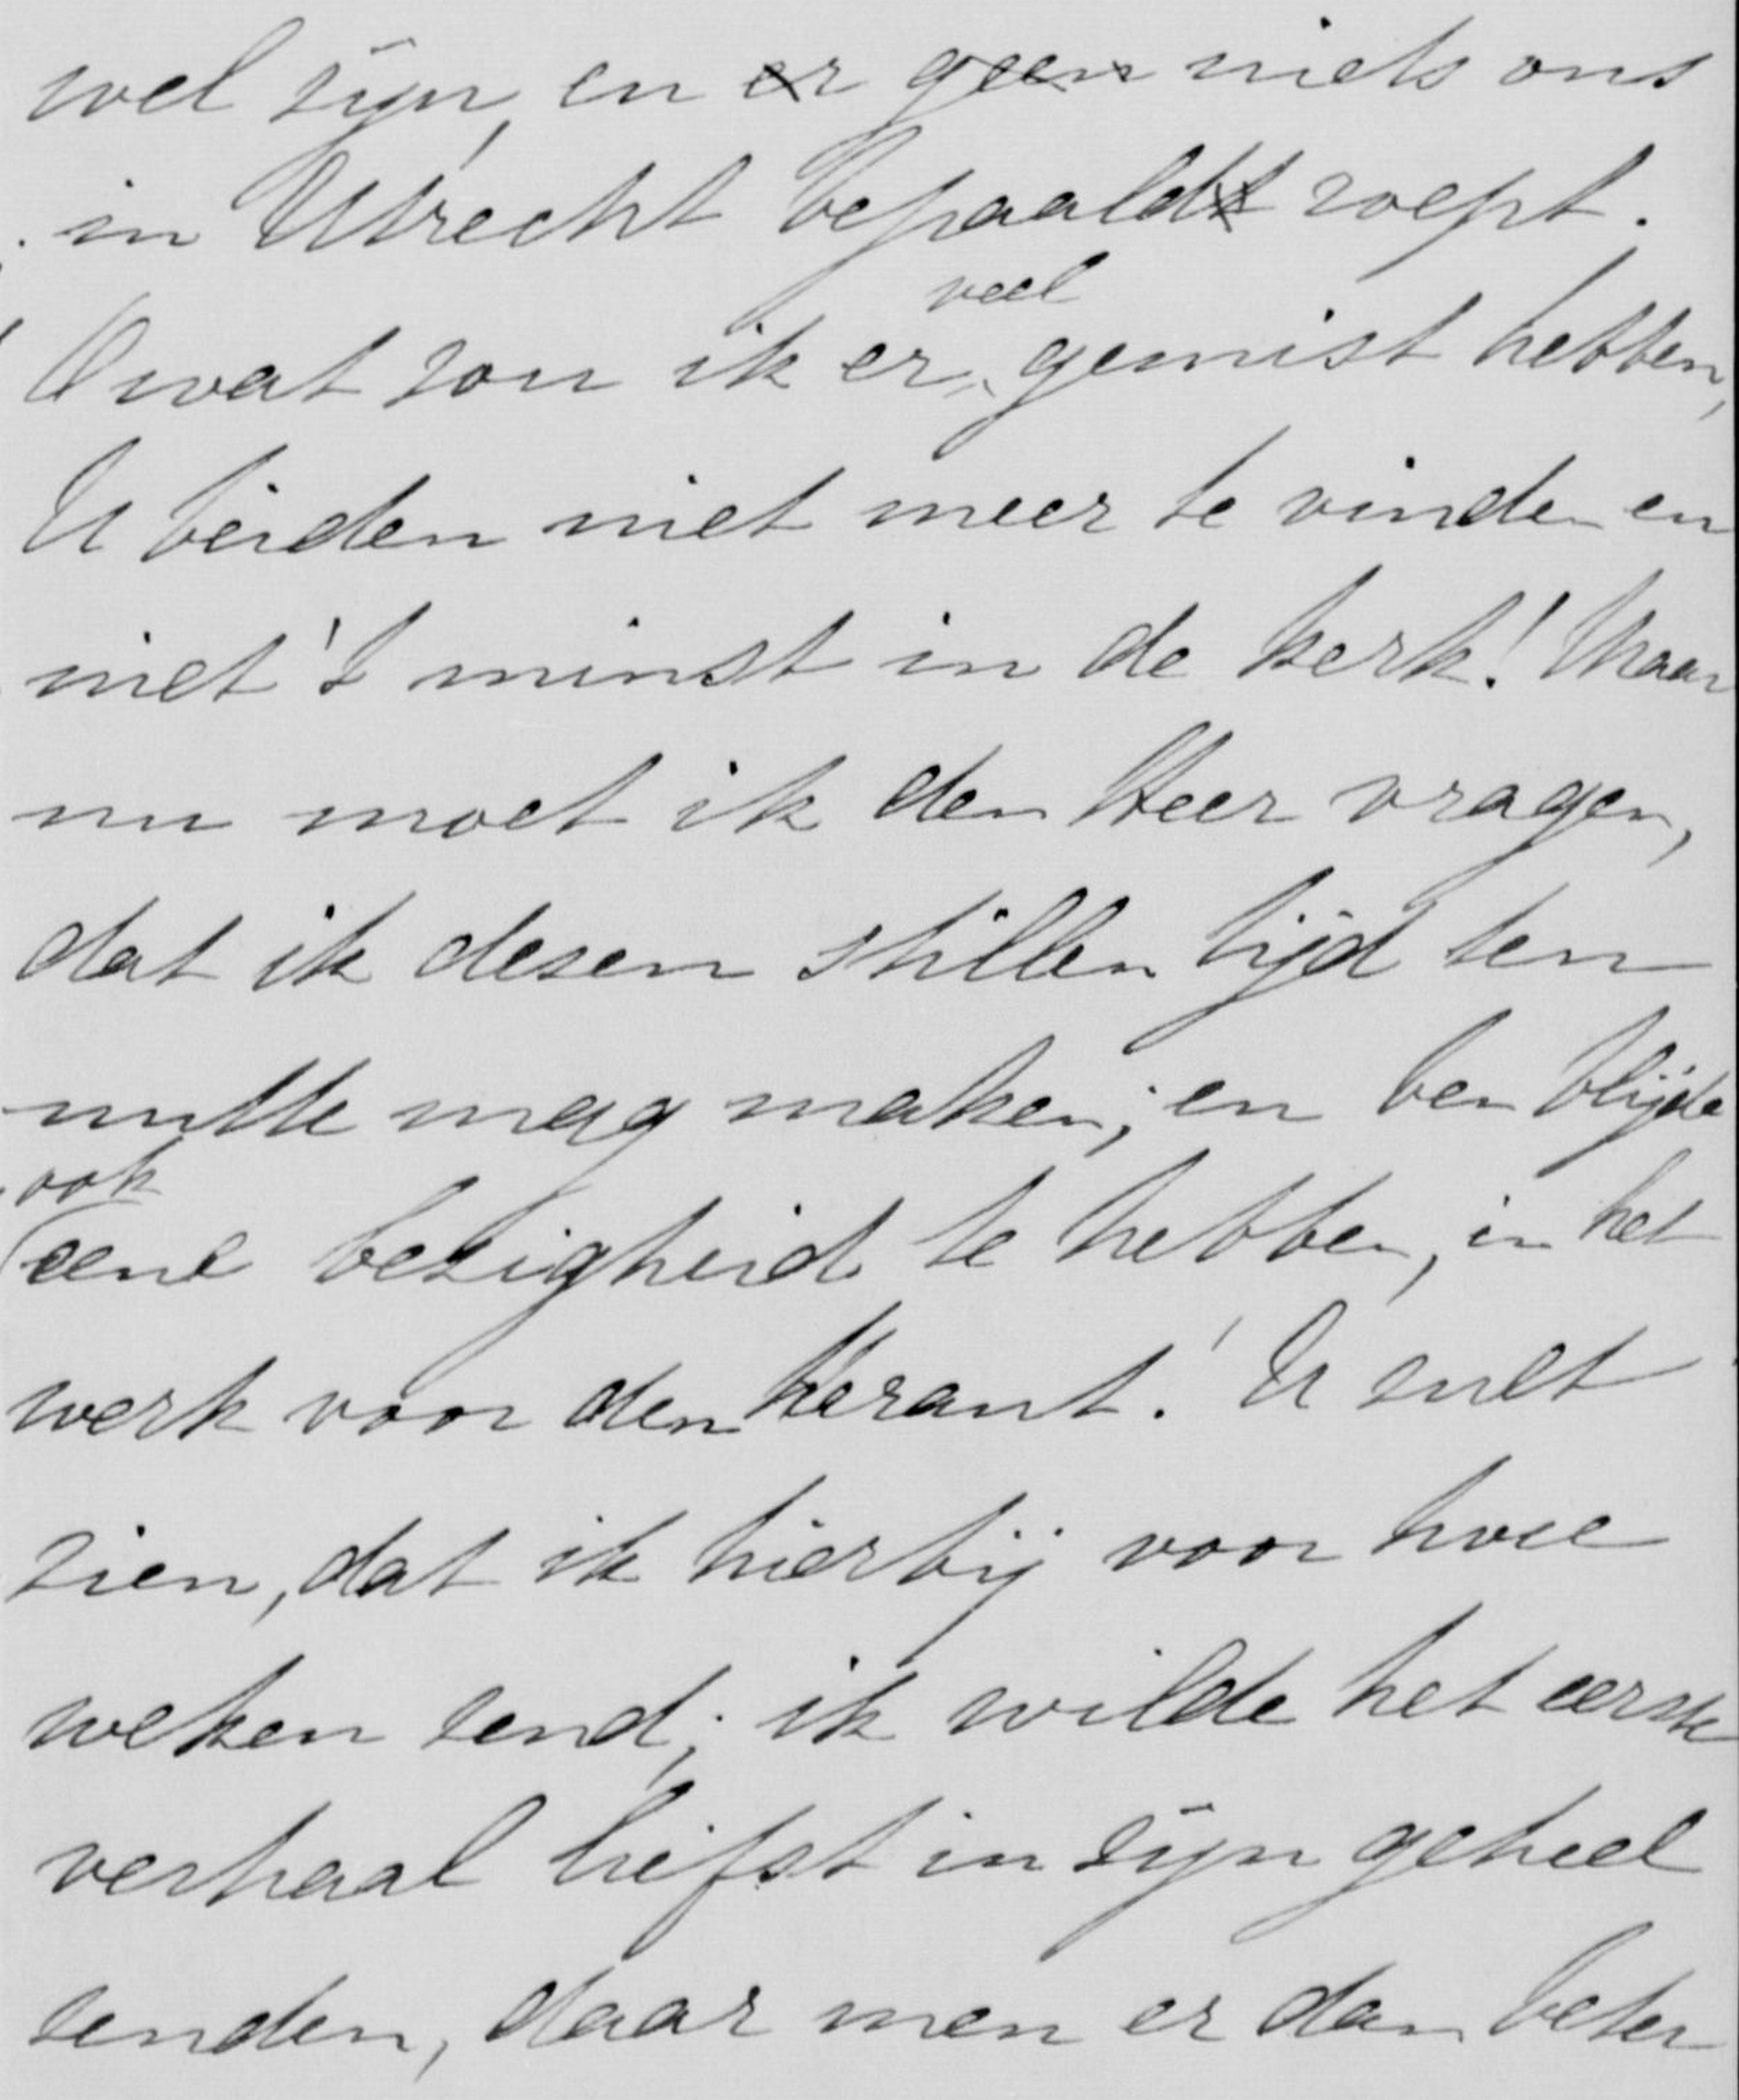 wel zijn, en er geen niets ons
in Utrecht bepaaldt roept.
veel
O wat zou ik er gemist hebben,
U beiden niet meer te vinden en
niet 't minst in de kerk! Maar
nu moet ik den Heer vragen,
dat ik dezen stillen tijd ten
nutte mag maken; en ben blijde
ook
eene bezigheid te hebben, in het
werk voor den Kerant! U zult
zien, dat ik hierbij voor twee
weken zend; ik wilde het eerste
verhaal liefst in zijn geheel
zenden, daar men er dan beter